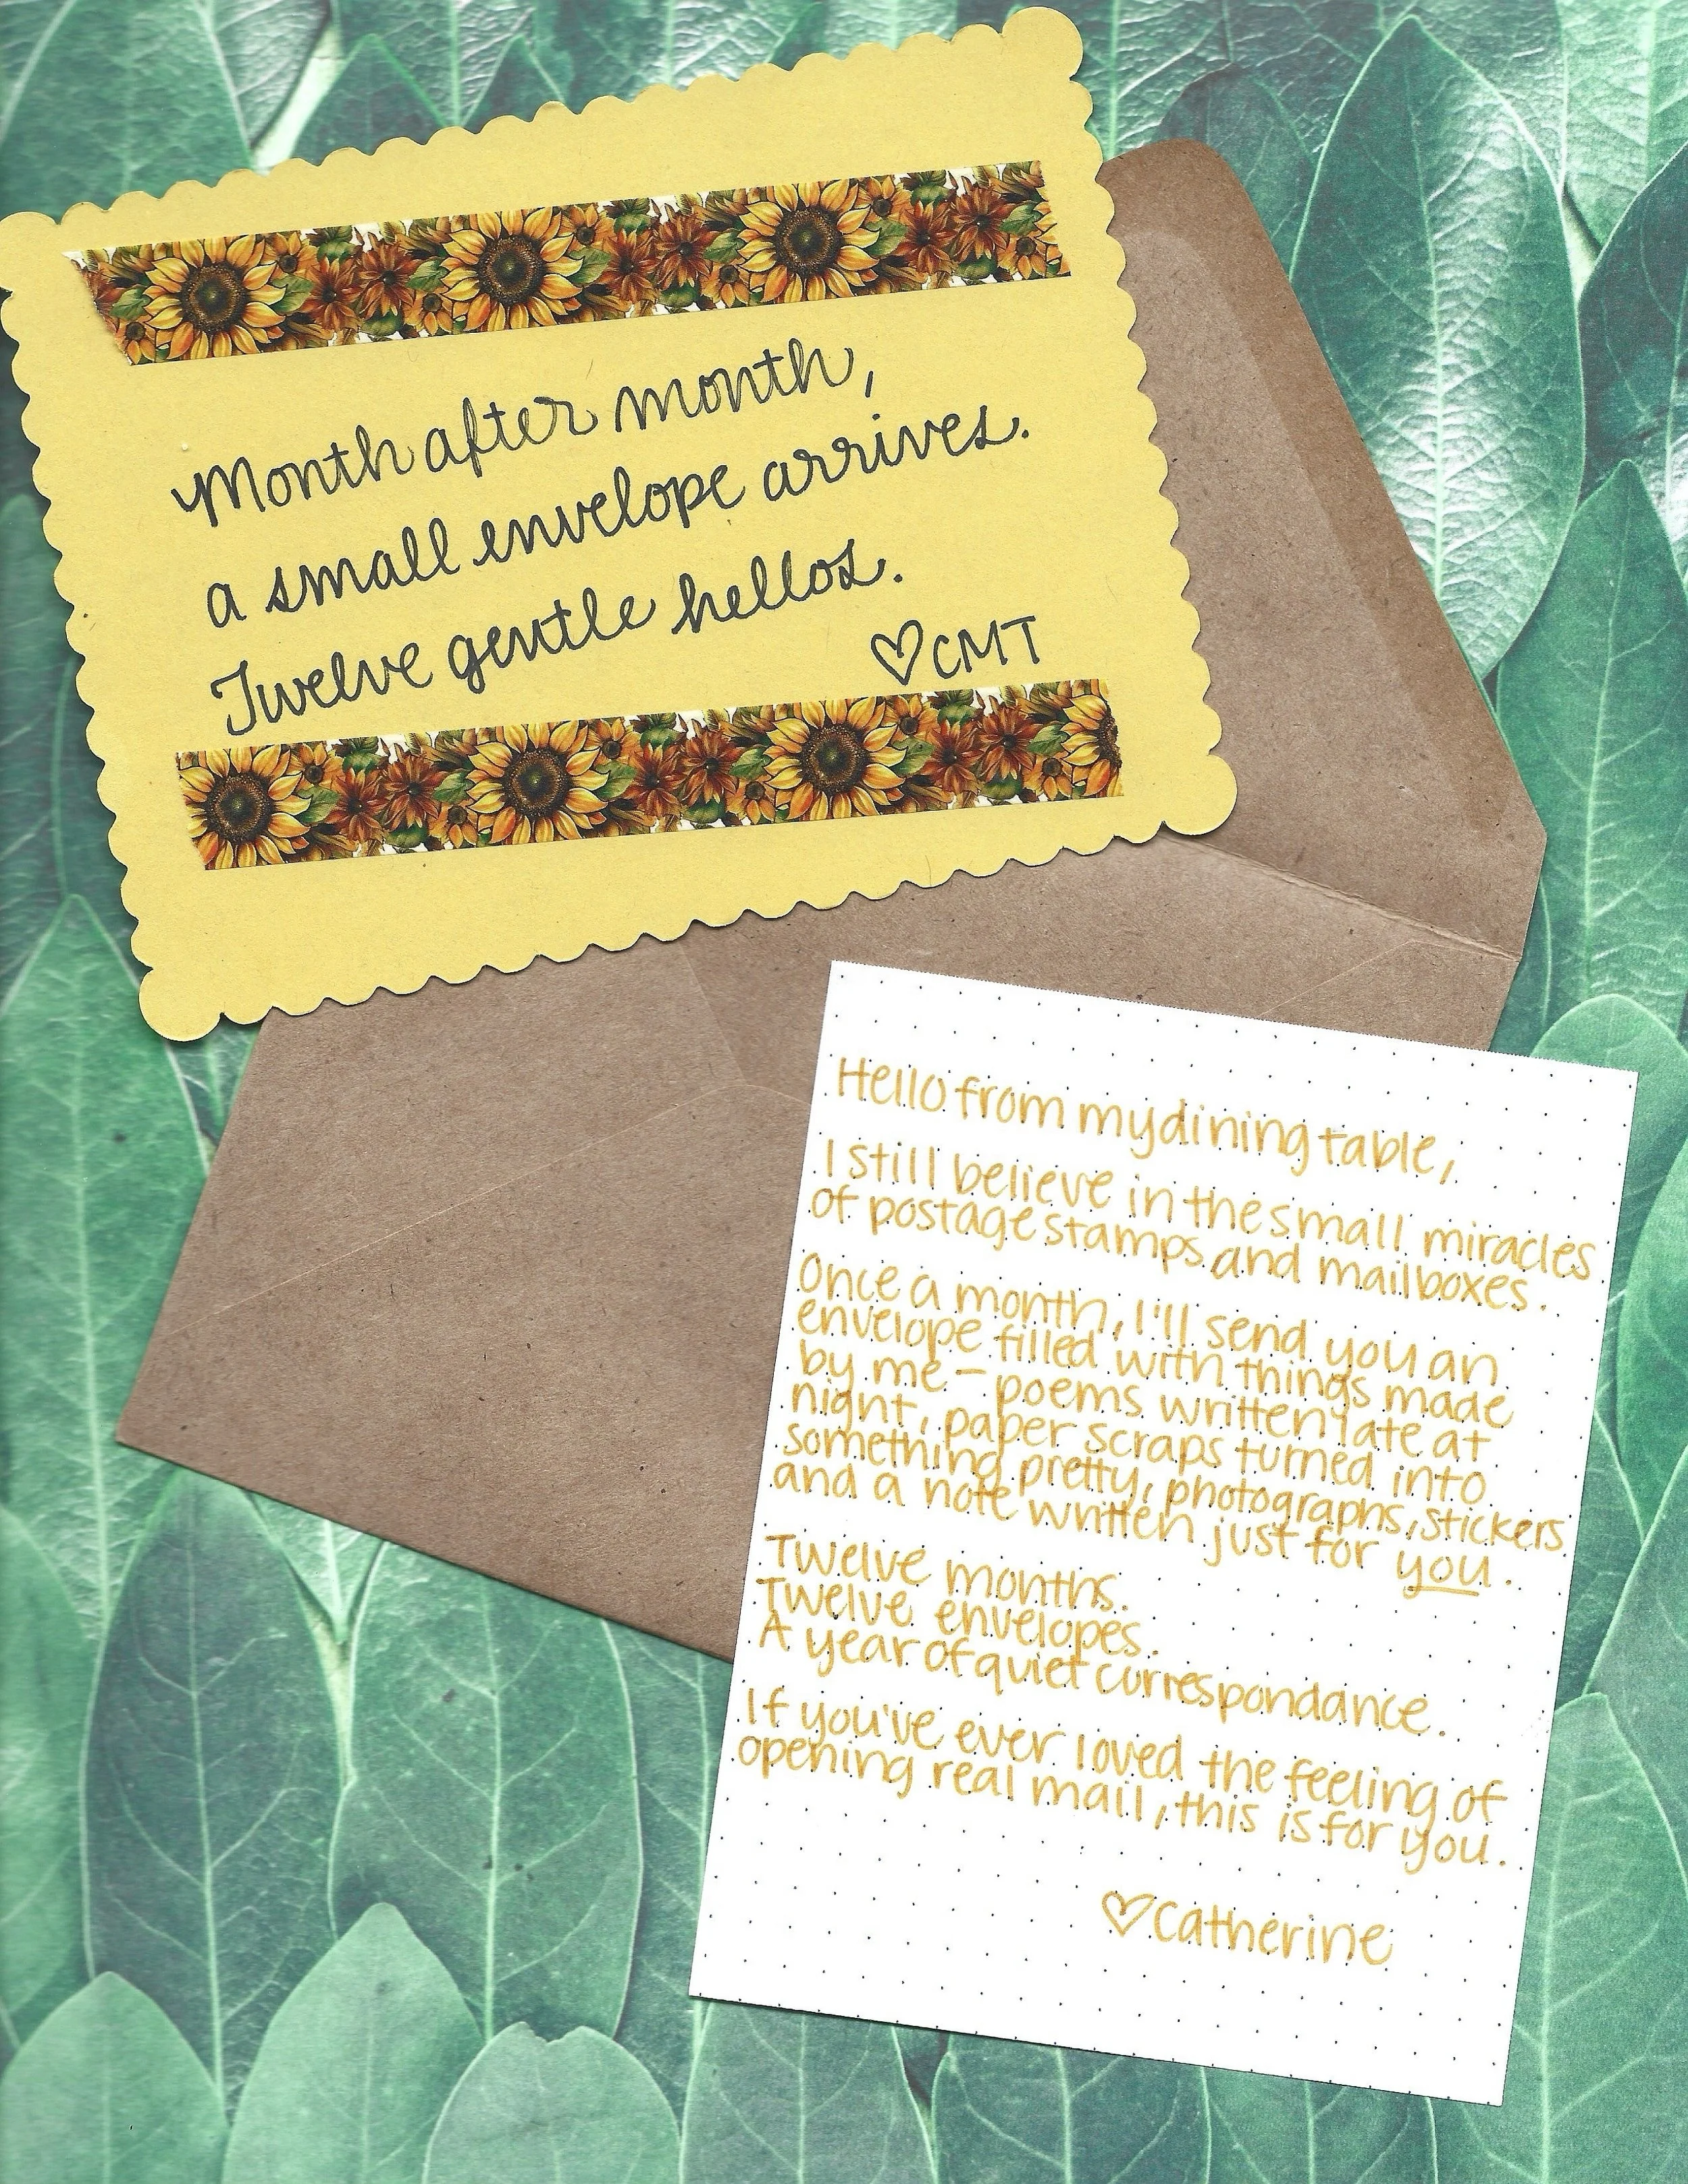 Month after month,
a small envelope arrives.
Twelve gentle hellos.
♡CMT
Hello from my dining table,
I still believe in the small miracles
of postage stamps and mailboxes.
Once a month, I'll send you an
envelope filled with things made
by me - poems written late at
night, paper scraps turned into
something pretty, photographs, stickers
and a note written just for you.
Twelve months.
Twelve envelopes.
A year of quiet correspondance.
If you've ever loved the feeling of
opening real mail, this is for you.
♡Catherine